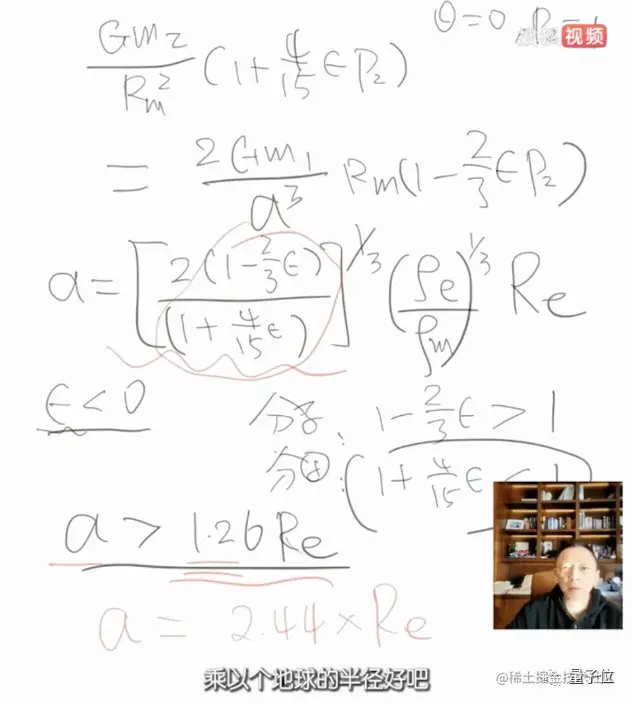 θ=0 P₂=1
搜狐视频
Gm₂/Rm² (1+4/15 ϵP₂)
= 2Gm₁/a³ Rm(1-2/3 ϵP₂)
a=[2(1-2/3 ϵ)/(1+4/15 ϵ)]^1/3 (ρe/ρm)^1/3 Re
ϵ<0
分子: 1-2/3 ϵ>1
分母: (1+4/15 ϵ<1)
a > 1.26Re
a = 2.44×Re
乘以个地球的半径好吧
@稀土掘金技术社区
量子位